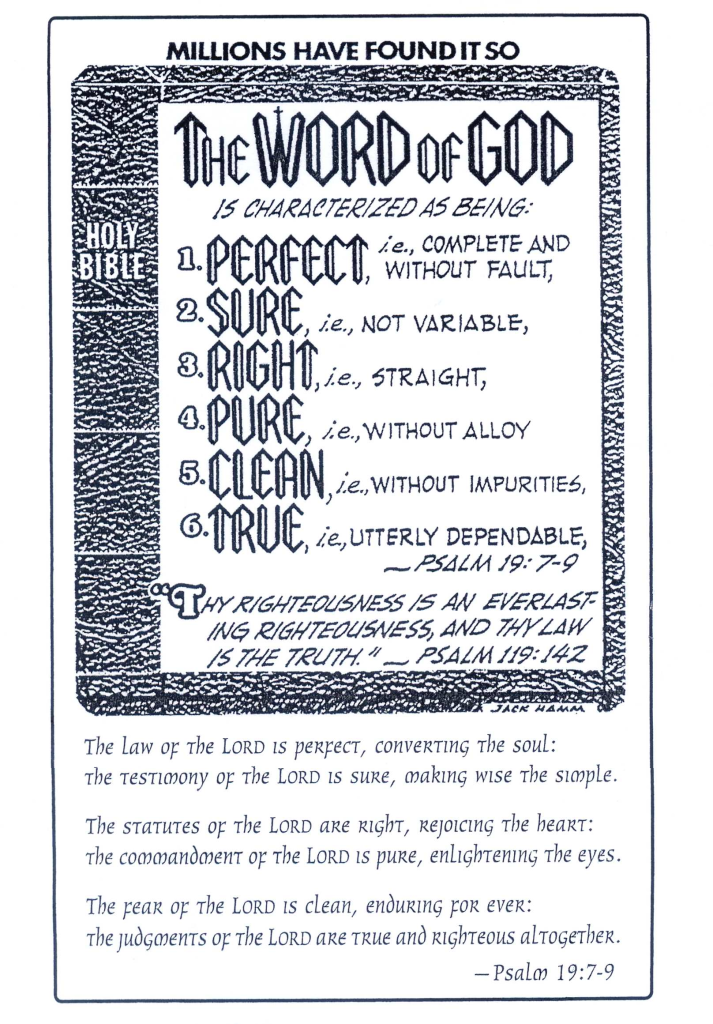 MILLIONS HAVE FOUND IT SO
THE WORD OF GOD
IS CHARACTERIZED AS BEING:
HOLY
BIBLE
1. PERFECT, i.e., COMPLETE AND
WITHOUT FAULT,
2. SURE, i.e., NOT VARIABLE,
3. RIGHT, i.e., STRAIGHT,
4. PURE, i.e., WITHOUT ALLOY
5. CLEAN, i.e., WITHOUT IMPURITIES,
6. TRUE, i.e., UTTERLY DEPENDABLE,
— PSALM 19: 7-9
"THY RIGHTEOUSNESS IS AN EVERLAST-
ING RIGHTEOUSNESS, AND THY LAW
IS THE TRUTH." — PSALM 119:142
JACK HAMM
The law of the LORD is perfect, converting the soul:
the testimony of the LORD is sure, making wise the simple.
The statutes of the LORD are right, rejoicing the heart:
the commandment of the LORD is pure, enlightening the eyes.
The fear of the LORD is clean, enduring for ever:
the judgments of the LORD are true and righteous altogether.
—Psalm 19:7-9